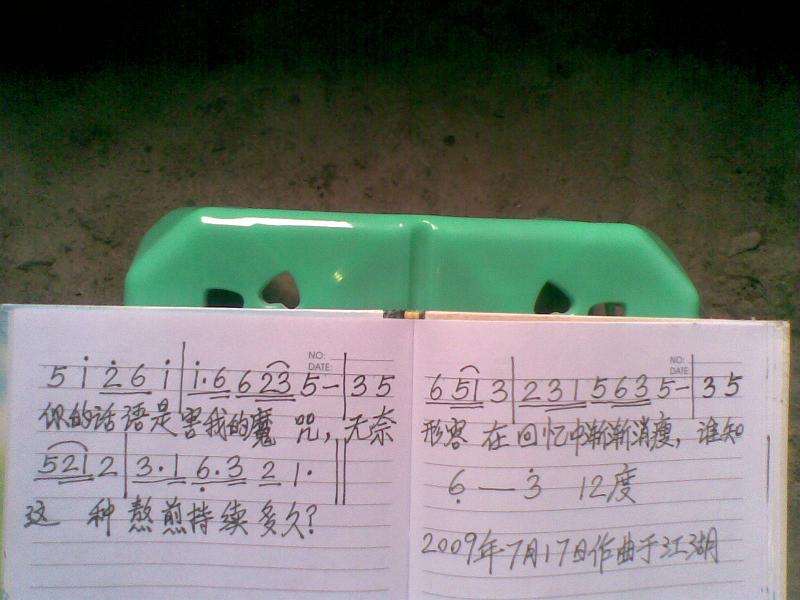 NO:
DATE:
5 i̇ 2̇ 6 i̇ | i̇·6 6 2 3 5 — | 3 5
你的话语是害我的魔咒,无奈
5 2 1 2 | 3·1 6̣·3 2 1· ||
这种熬煎持续多久?
NO:
DATE:
6 5 1 3 | 2 3 1 5 6 3 5 — | 3 5
形容在回忆中渐渐消瘦,谁知
6̣ — 3̇ 12度
2009年7月17日作曲于江湖